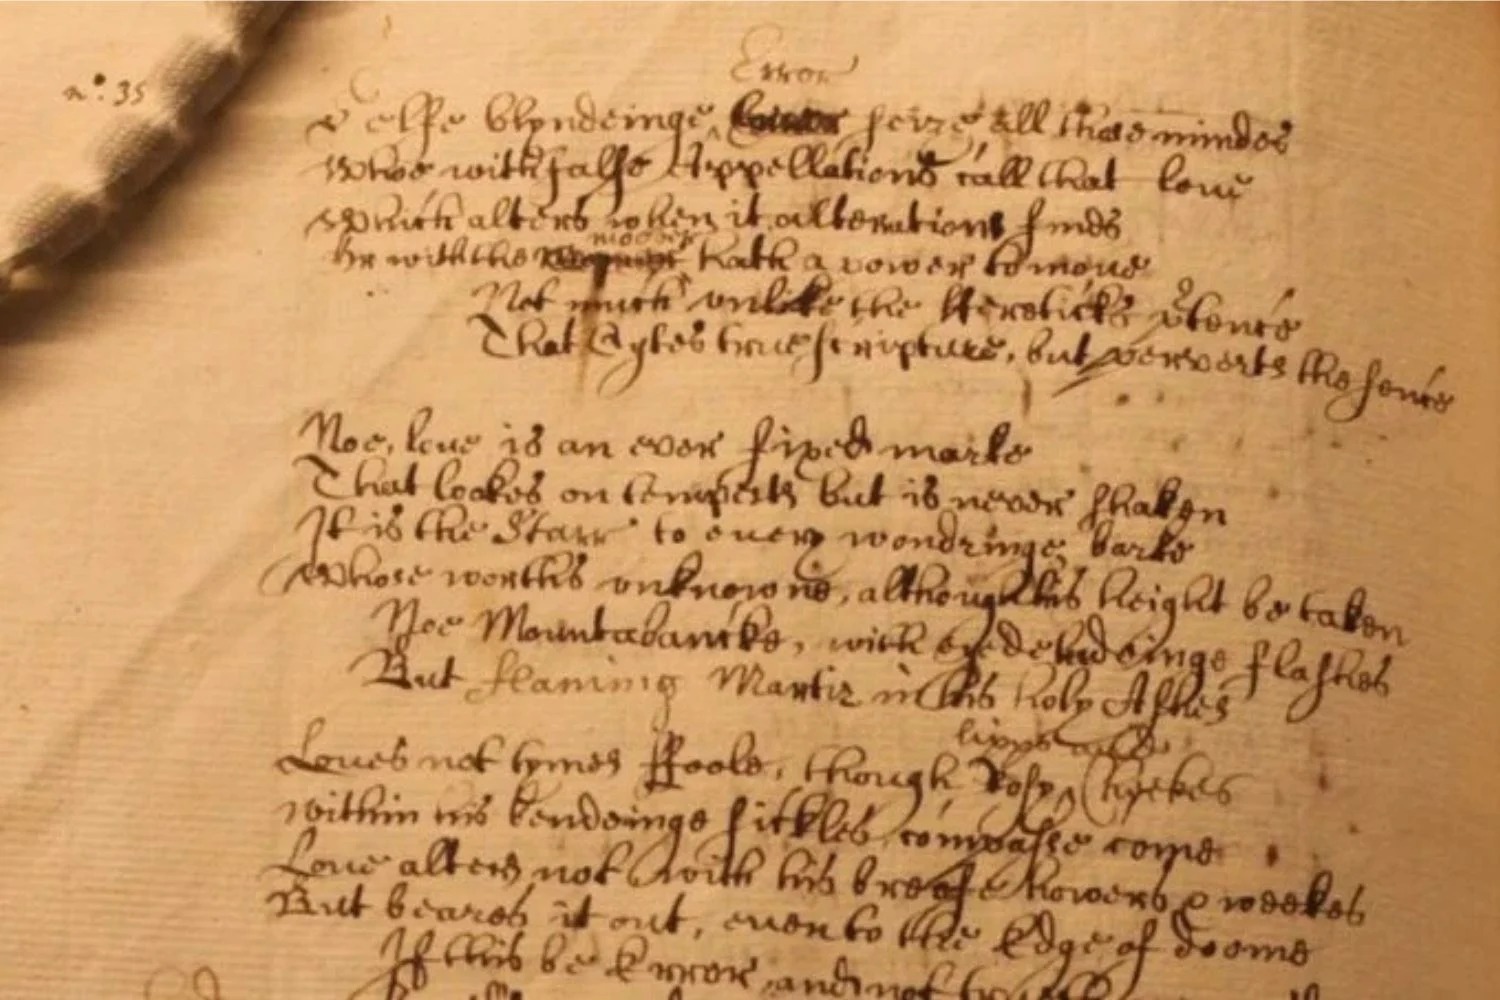 Error
n.° 35
Selfe blyndeinge seize all those mindes
Whoe with false Appellations call that loue
Which alters when it alterations finds
Or with the mover hath a power to moue
Not much vnlike the Hereticks ptence
That Cytes true scripture, but perverts the sence
Noe, loue is an ever fixed marke
That lookes on tempests but is never shaken
It is the Starr to every wondringe barke
Whose worths vnknowne, although his height be taken
Noe Mountabancke, with eye deludeinge flashes
But flaming Martir in his holy Ashes
lipps and
Loues not tymes ffoole, though Rosy Cheekes
within his bendeinge sickles compasse come
Loue alters not with his breife howers & weekes
But beares it out, even to the Edge of doome
If this be Error and not